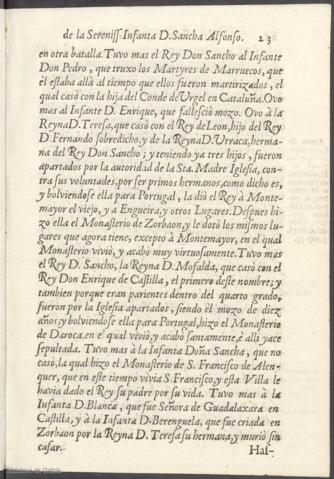 de la Sereniss. Infanta D. Sancha Alfonso. 23
en otra batalla. Tuvo mas el Rey Don Sancho al Infante
Don Pedro, que truxo los Martyres de Marruecos, que
èl estaba allà al tiempo que ellos fueron martirizados, el
qual casò con la hija del Conde de Urgel en Cataluña. Ovo
mas al Infante D. Enrique, que fallesciò mozo. Ovo à la
Reyna D. Teresa, que casò con el Rey de Leon, hijo del Rey
D. Fernando sobredicho, y de la Reyna D. Urraca, herma-
na del Rey Don Sancho; y teniendo ya tres hijos, fueron
apartados por la autoridad de la Sta. Madre Iglesia, con-
tra sus voluntades, por ser primos hermanos, como dicho es,
y bolviendose ella para Portugal, la diò el Rey à Monte-
mayor el viejo, y a Engueira, y otros Lugares. Despues hi-
zo ella el Monasterio de Zorbaon, y le dotò los mismos lu-
gares que agora tiene, excepto à Montemayor, en el qual
Monasterio viviò, y acabò muy virtuosamente. Tuvo mas
el Rey D. Sancho, la Reyna D. Mofalda, que casò con el
Rey Don Enrique de Castilla, el primero deste nombre; y
tambien porque eran parientes dentro del quarto grado,
fueron por la Iglesia apartados, siendo èl mozo de diez
años; y bolviendose ella para Portugal, hizo el Monasterio
de Daroca, en el qual viviò, y acabò santamente, è alli yace
sepultada. Tuvo mas à la Infanta Doña Sancha, que no
casò, la qual hizo el Monasterio de S. Francisco de Alen-
quer, que en este tiempo vivia S. Francisco, y esta Villa le
havia dado el Rey su padre por su vida. Tuvo mas à la
Infanta D. Blanca, que fue Señora de Guadalaxara en
Castilla, y à la Infanta D. Berenguela, que fue criada en
Zorbaon por la Reyna D. Teresa su hermana, y muriò sin
casar. Hal-